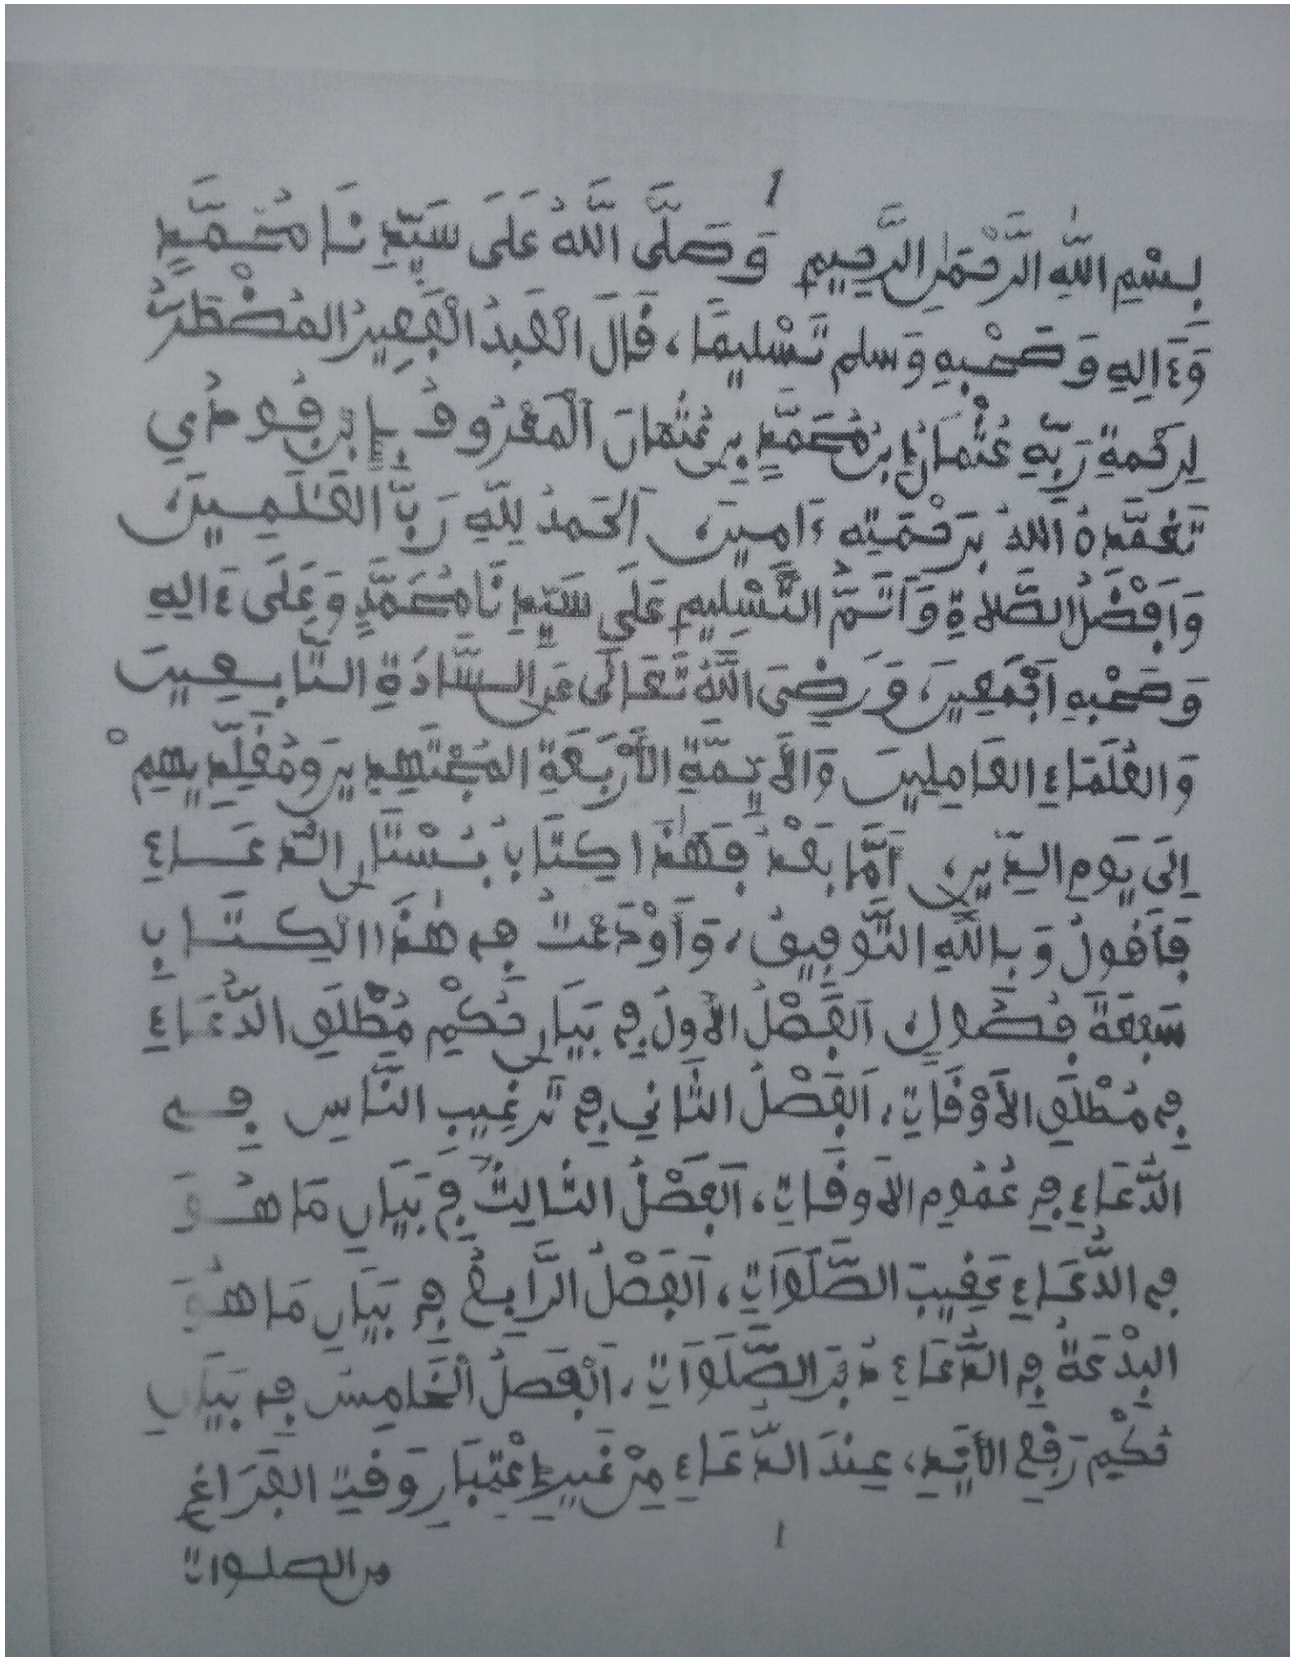 1
بِسْمِ اللَّهِ الرَّحْمَٰنِ الرَّحِيمِ وَصَلَّى اللَّهُ عَلَى سَيِّدِنَا مُحَمَّدٍ
وَءَالِهِ وَصَحْبِهِ وَسلم تَسْلِيمًا، قَالَ الْعَبْدُ الْفَقِيرُ المُضْطَرُّ
لِرَحْمَةِ رَبِّهِ عُثْمَانُ بْنُ مُحَمَّدٍ بنِ عُثْمَانَ الْمَعْرُوفُ بِإِبْنِ فُودُيِ
تَغَمَّدَهُ اللَّهُ بِرَحْمَتِهِ ءَامِينَ، اَلحَمدُ لِلَّهِ رَبِّ العَٰلَمِينَ،
وَأَفْضَلُ الصَّلَاةِ وَأَتَمُّ التَّسْلِيمِ عَلَى سَيِّدِنَا مُحَمَّدٍ وَعَلَى ءَالِهِ
وَصَحْبِهِ أَجْمَعِينَ، وَرَضِيَ اللَّهُ تَعَالَى عَنِ السَّادَةِ التَّابِعِينَ
وَالعُلَمَاءِ العَامِلِينَ وَالأَيِمَّةِ الأَرْبَعَةِ المُجْتَهِدِينَ وَمُقَلِّدِيهِمْ
إِلَى يَومِ الدِّينِ أَمَّا بَعْدُ فَهَٰذَا كِتَابُ بُسْتَانِ الدُّعَاءِ
فَأَقُولُ وَبِاللَّهِ التَّوفِيقُ، وَأَوْدَعْتُ فِي هَٰذَا الكِتَابِ
سَبْعَةَ فُصُولٍ اَلفَصْلُ الأَولُ فِي بَيَانِ حُكْمِ مُطْلَقِ الدُّعَاءِ
فِي مُطْلَقِ الأَوْقَاتِ، اَلفَصْلُ الثَّانِي فِي تَرغِيبِ النَّاسِ فِي
الدُّعَاءِ فِي عُمُومِ الأَوقَاتِ، اَلفَصْلُ الثَّالِثُ فِي بَيَانِ مَا هُوَ
فِي الدُّعَاءِ عَقِيبَ الصَّلَوَاتِ، اَلفَصْلُ الرَّابِعُ فِي بَيَانِ مَا هُوَ
البِدْعَةُ فِي الدُّعَاءِ دُبُرَ الصَّلَوَاتِ، اَلفَصلُ الْخَامِسُ فِي بَيَانِ
حُكْمِ رَفْعِ الأَيْدِ، عِندَ الدُّعَاءِ مِنْ غَيرِ إِعْتِبَارِ وَقتِ الفَرَاغِ
من الصلوات
1